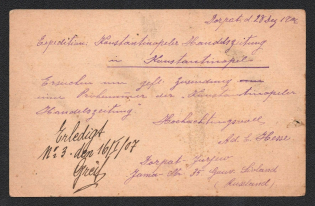 Dorpat, d. 28 Dez 190
Expedition: Konstantinopeler Handelszeitung
in Konstantinopel
Ersuchen um gefl. Zusendung von
einer Probenummer der "Konstantinopeler
Handelszeitung.
Hochachtungsvoll
Ad. Hesse
Erledigt
No 3 - den 16/I/07
Dorpat - Jurjew
Russland